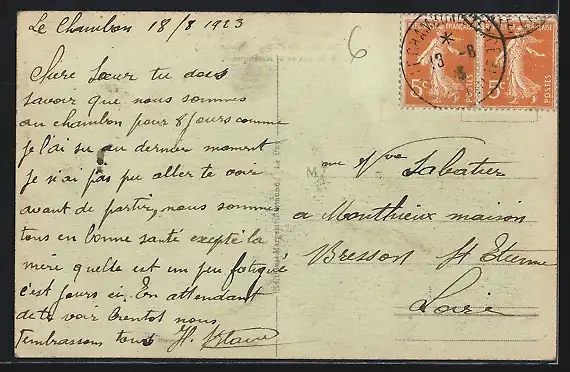 Le Chambon 18/8 1923
Chère Soeur tu dois
savoir que nous sommes
au chambon pour 8 jours comme
je l'ai su au dernier moment
je n'ai pas pu aller te voir
avant de partir, nous somme
tous en bonne santé excepté la
mère quelle est un peu fatigué
c'est jours ci, En attendant
de te voir bientot nous
t'embrassons tous H.
6
FRANÇAISE
5c POSTES
5c POSTES
M
me Vve Sabatier
a Monthieux maison
Bresson St Etienne
Loire